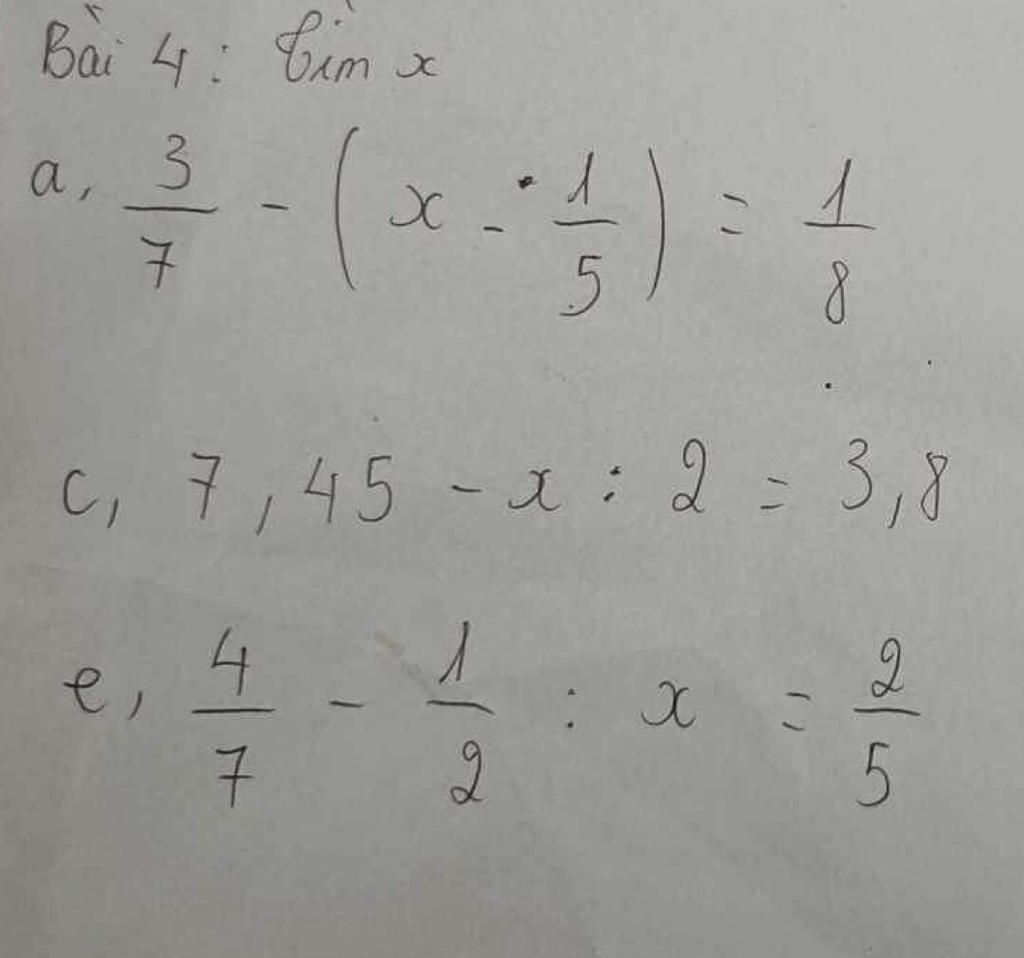 Bài 4 : Tìm x
a, 3/7 - ( x - 1/5 ) = 1/8
c, 7,45 - x : 2 = 3,8
e, 4/7 - 1/2 : x = 2/5